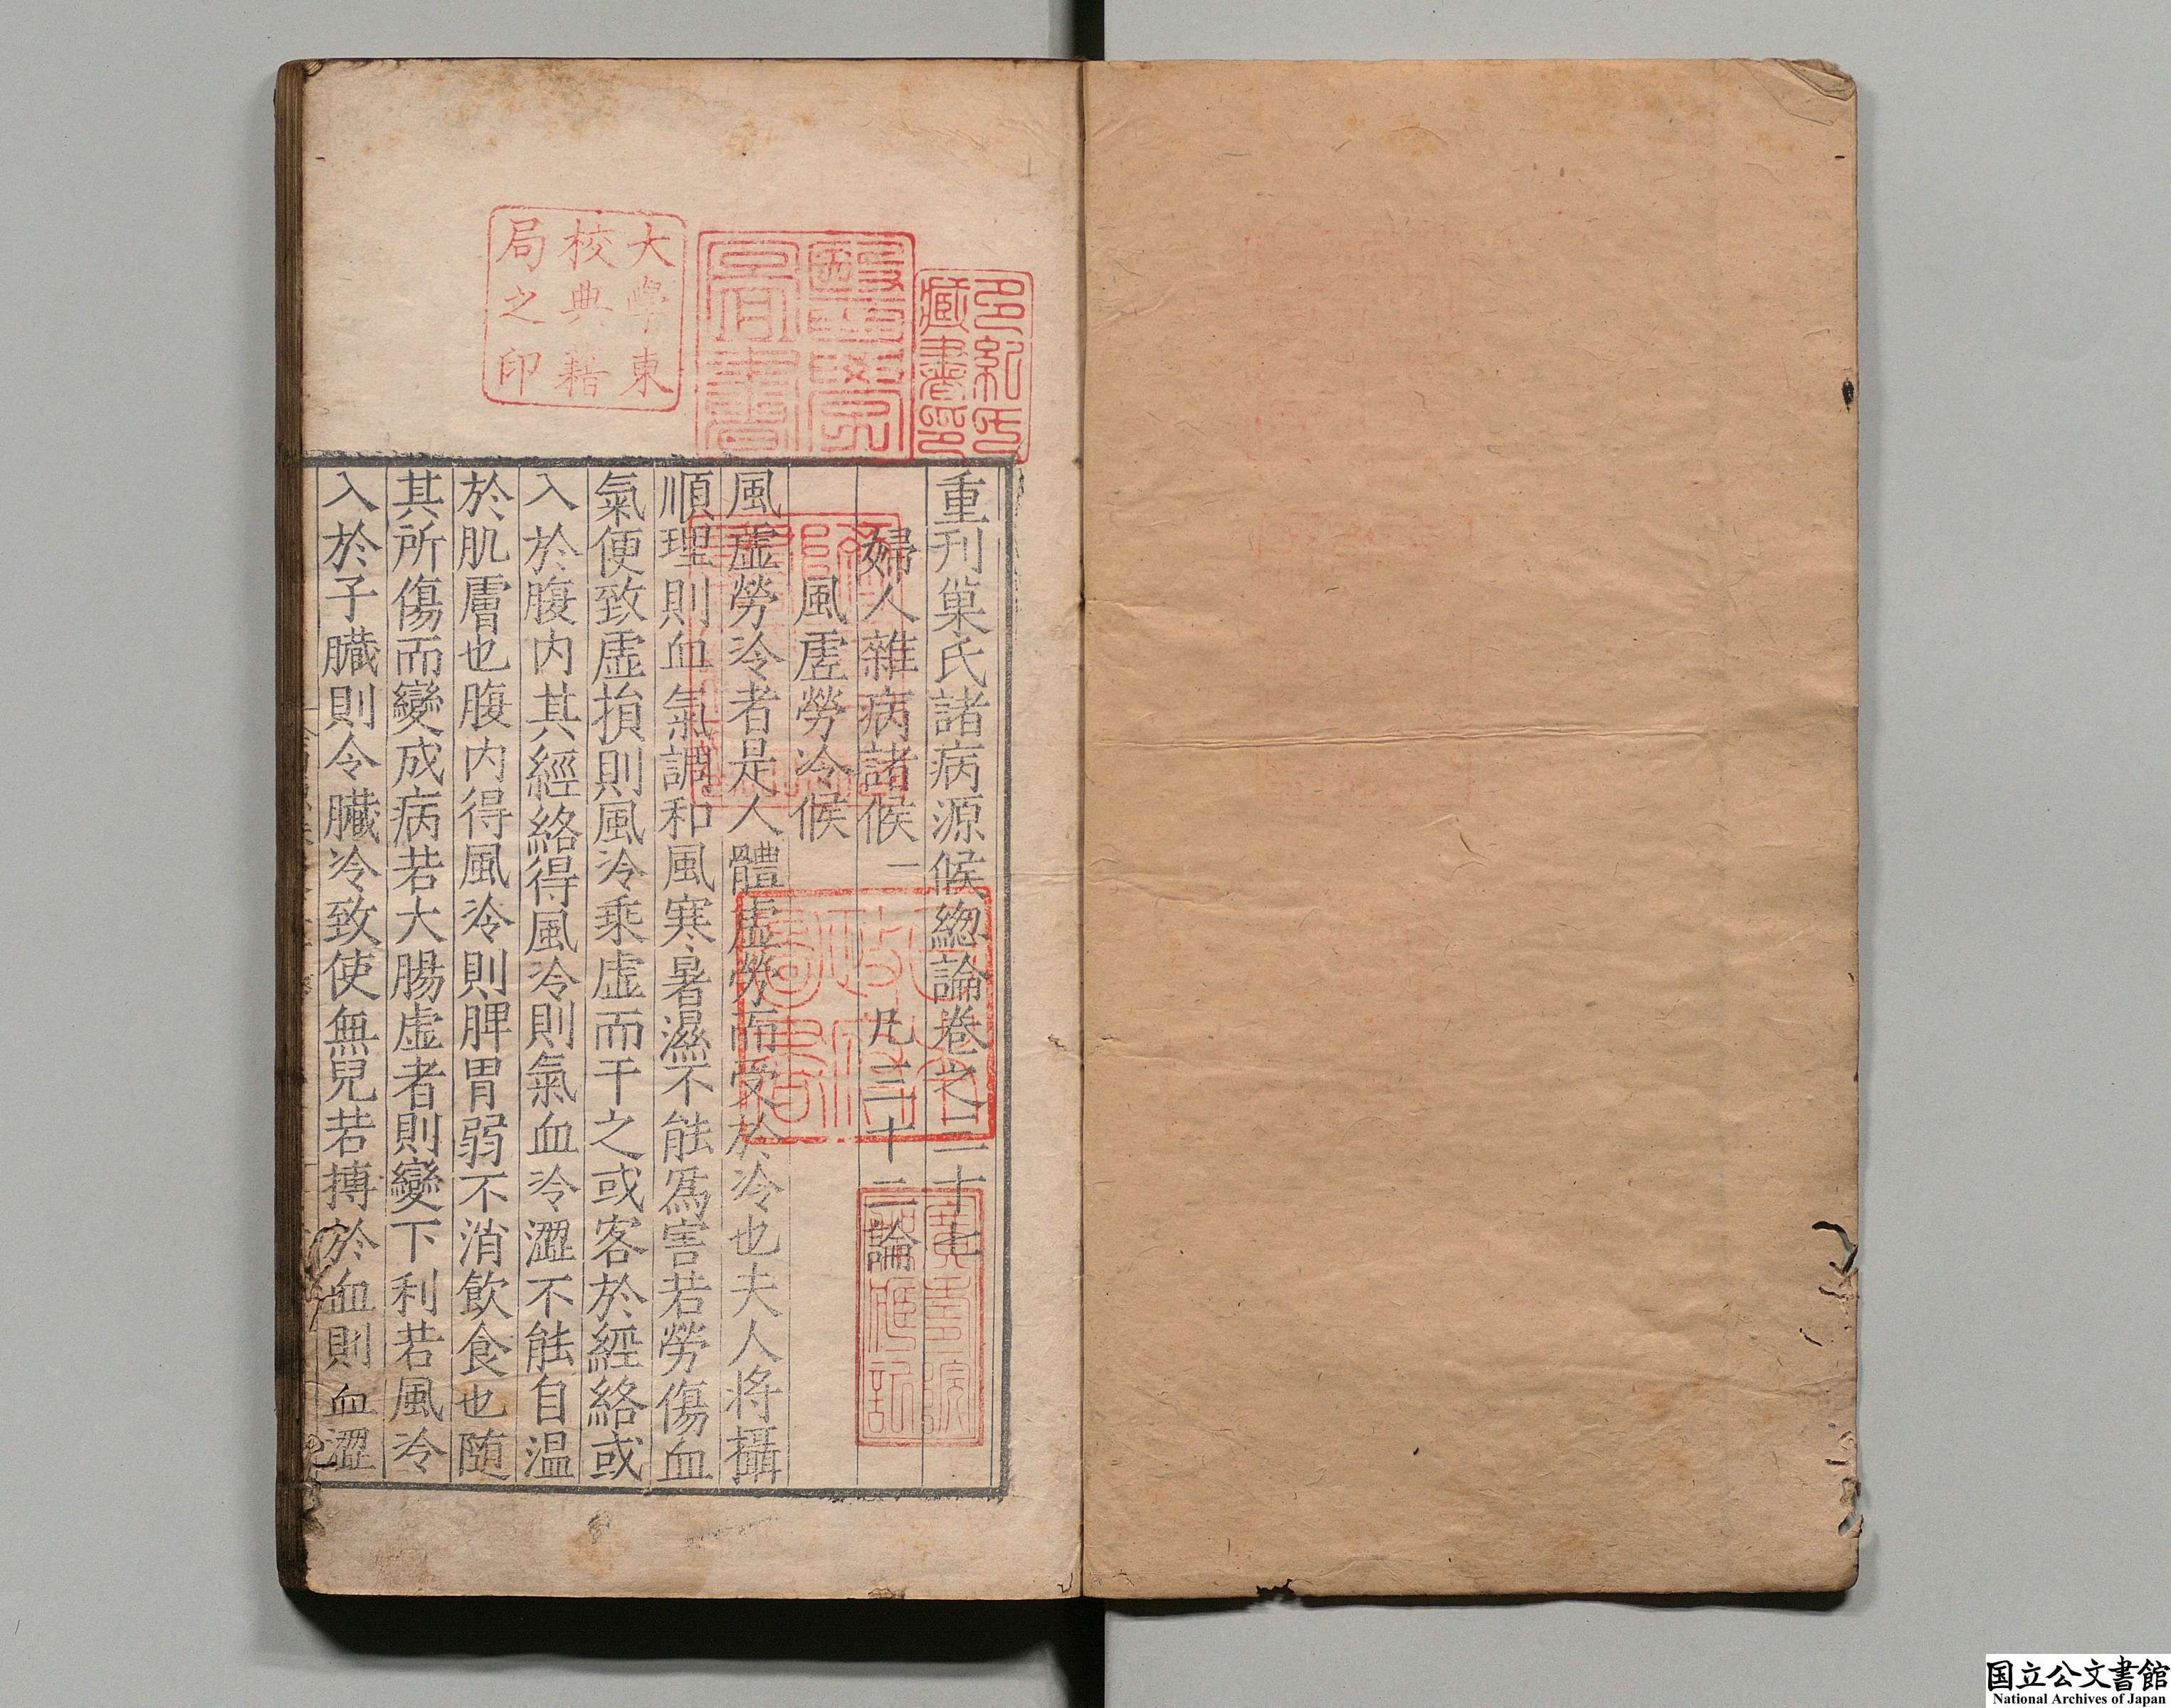 重刊巢氏諸病源候緫論卷之三十七
婦人雜病諸候一　凡三十二論
風虛勞冷候
風虛勞冷者是人體虛勞而受於冷也夫人将攝
順理則血氣調和風寒暑濕不能爲害若勞傷血
氣便致虛損則風冷乘虛而干之或客於經絡或
入於腹内其經絡得風冷則氣血冷澀不能自温
於肌膚也腹内得風冷則脾胃弱不消飲食也随
其所傷而變成病若大腸虛者則變下利若風冷
入於子臟則令臟冷致使無兒若搏於血則血澀
多紀氏
藏書印
醫學
大學東
校典籍
局之印
国立公文書館
National Archives of Japan